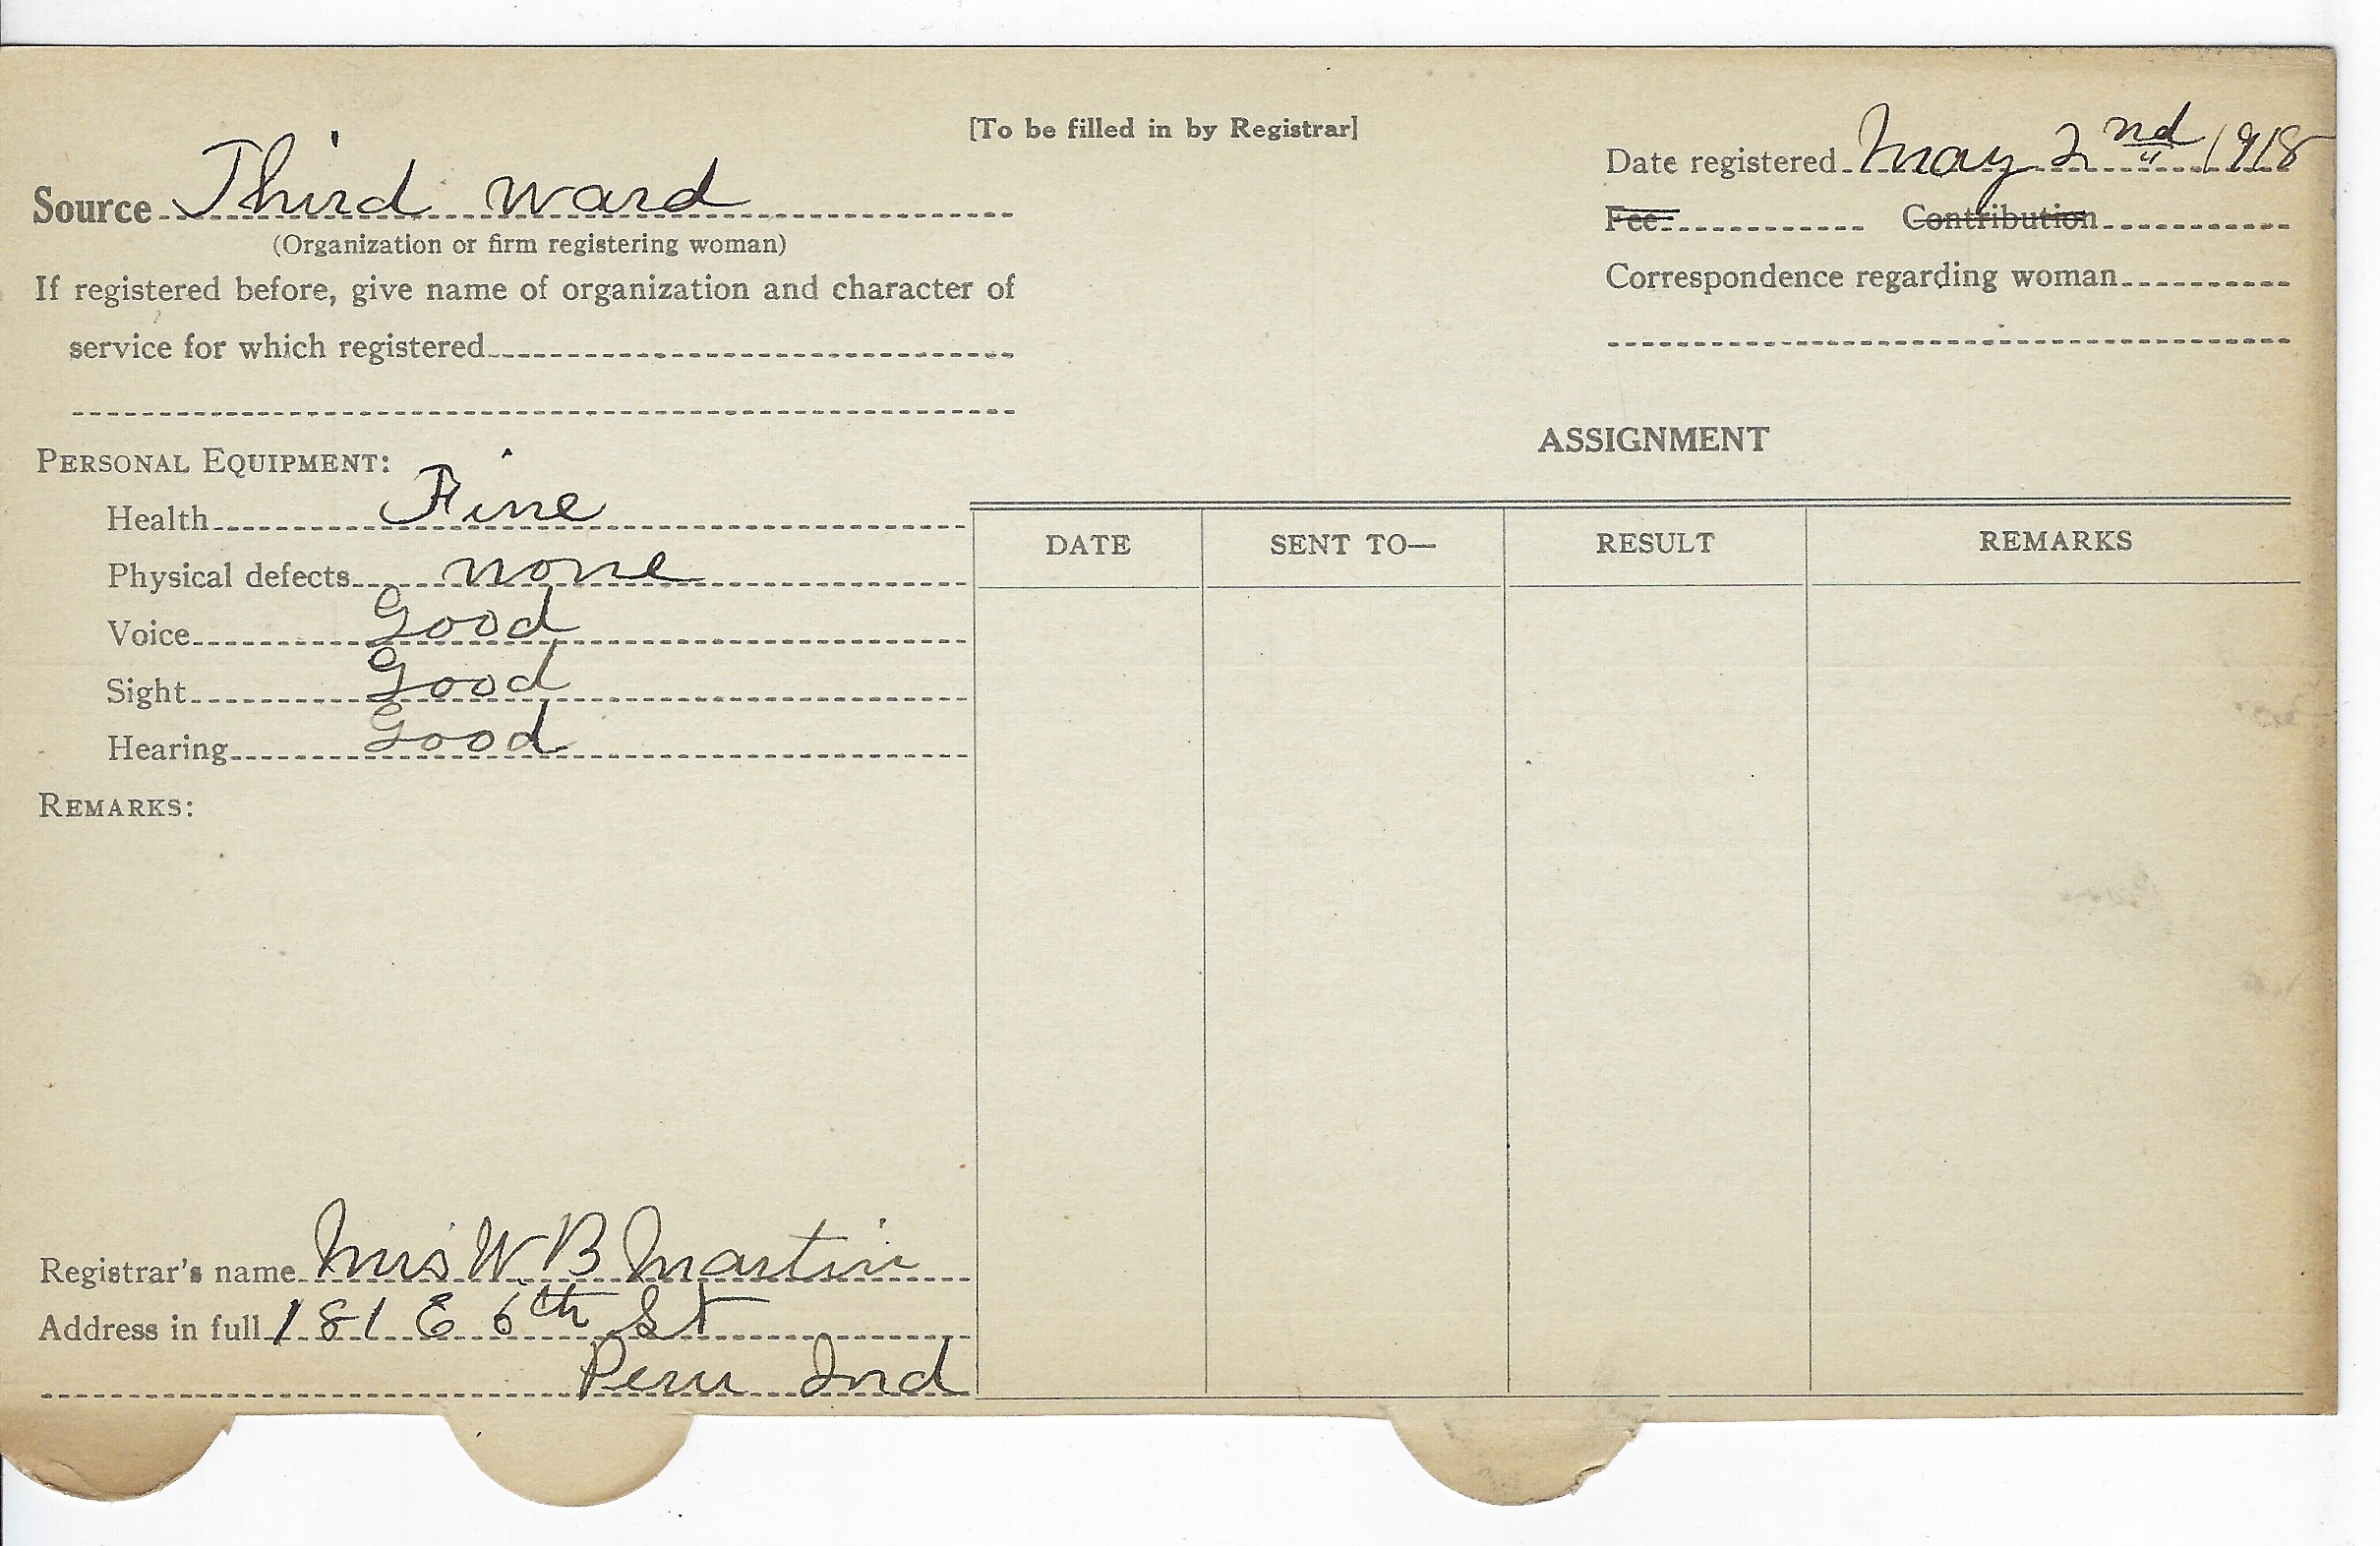 [To be filled in by Registrar]
Source Third ward
(Organization or firm registering woman)
If registered before, give name of organization and character of
service for which registered
Date registered May 2nd 1918
Fee Contribution
Correspondence regarding woman
PERSONAL EQUIPMENT:
Health Fine
Physical defects none
Voice Good
Sight Good
Hearing Good
REMARKS:
Registrar's name Mrs W B Martin
Address in full 181 E 6th St
Peru Ind
ASSIGNMENT
DATE SENT TO— RESULT REMARKS